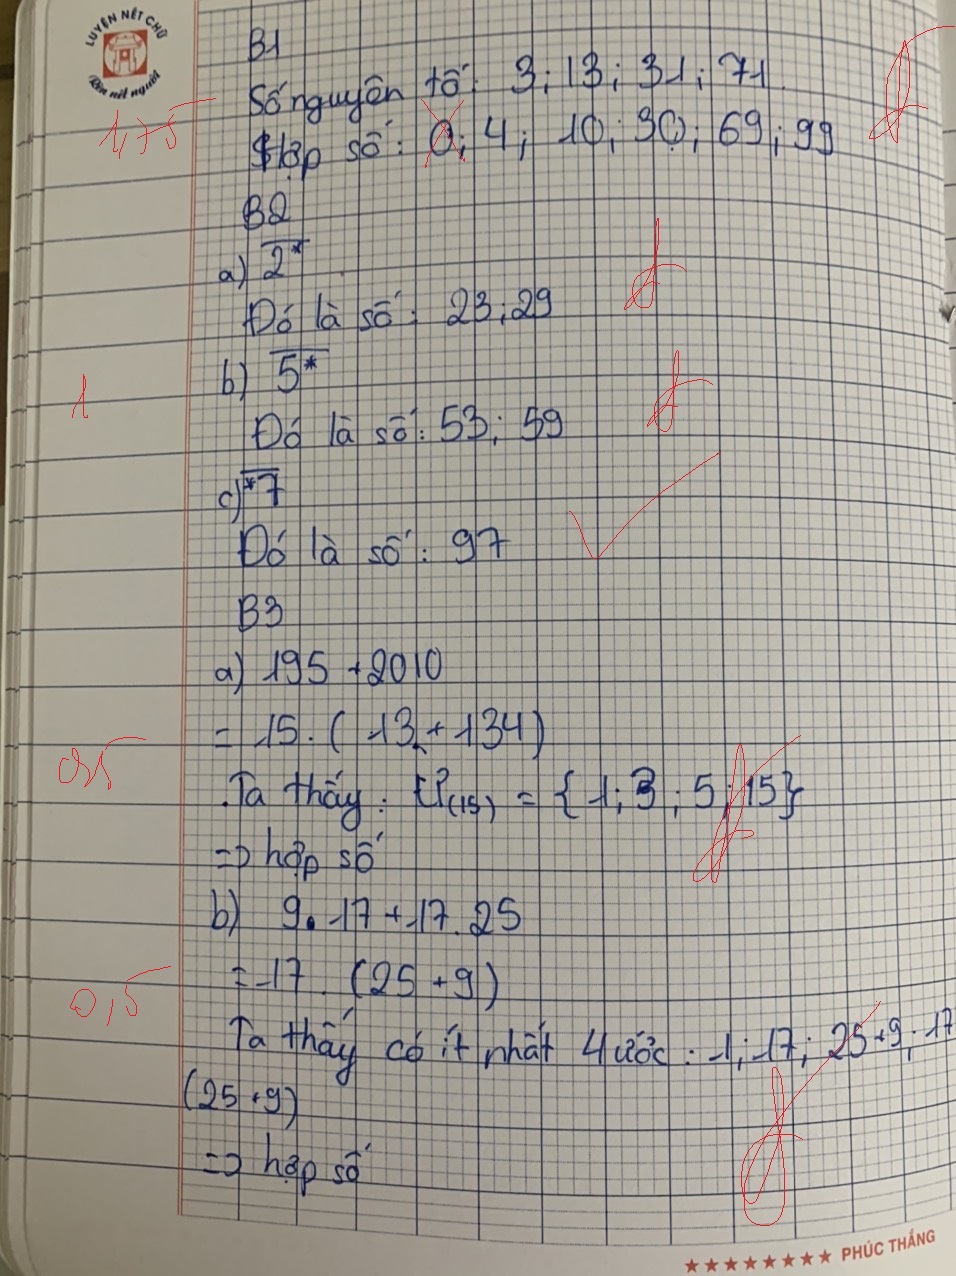 LUYỆN NÉT CHỮ
Rèn nết người
B1
Số nguyên tố: 3; 13; 31; 71
1,75
Hợp số: 0; 4; 10; 30; 69; 99
B2
a) 2*
Đó là số: 23; 29
b) 5*
1
Đó là số: 53; 59
c) *7
Đó là số: 97
B3
a) 195 + 2010
= 15. (13 + 134)
0,5
Ta thấy: Ư(15) = {1; 3; 5; 15}
=> hợp số
b) 9. 17 + 17. 25
= 17. (25 + 9)
0,5
Ta thấy có ít nhất 4 ước: 1; 17; 25+9; 17
(25 + 9)
=> hợp số
★★★★★★★★ PHÚC THẮNG